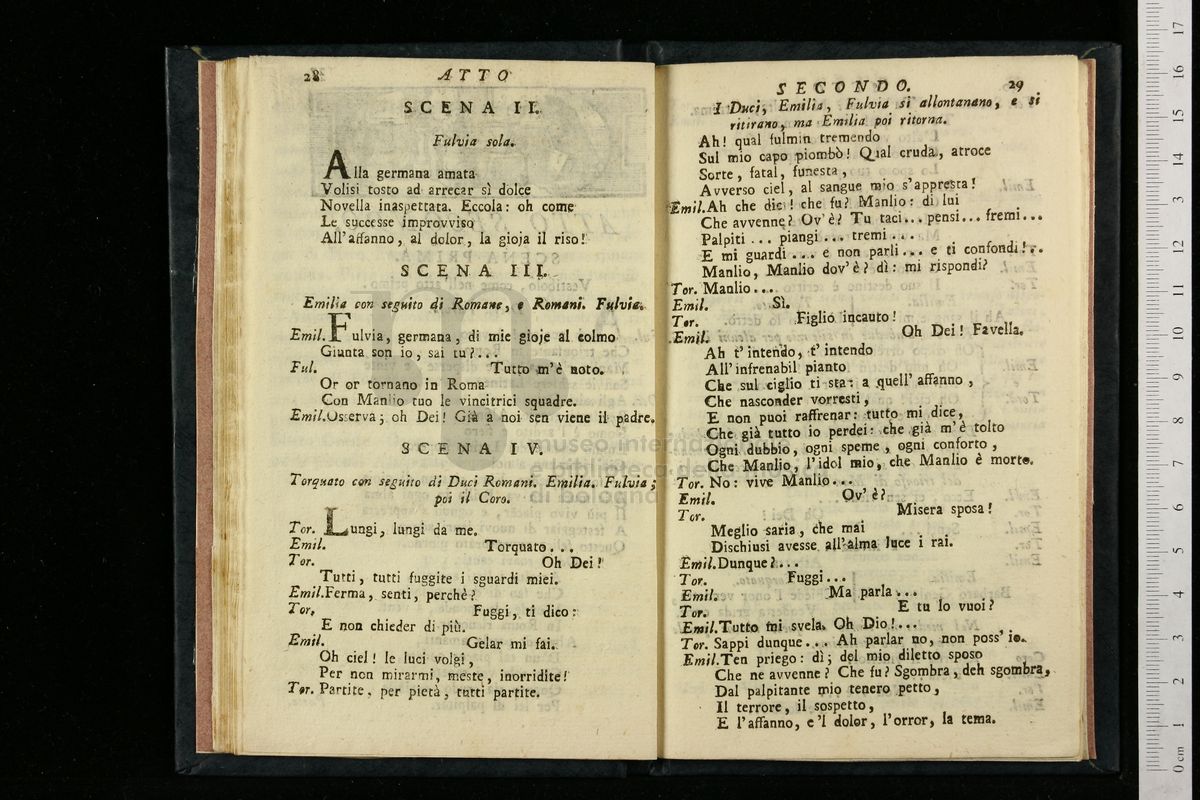 28
ATTO
SCENA II.
Fulvia sola.
Alla germana amata
Volisi tosto ad arrecar sì dolce
Novella inaspettata. Eccola: oh come
Le successe improvviso
All'affanno, al dolor, la gioja il riso!
SCENA III.
Emilia con seguito di Romane, e Romani. Fulvia.
Emil. Fulvia, germana, di mie gioje al colmo
Giunta son io, sai tu?...
Ful. Tutto m'è noto.
Or or tornano in Roma
Con Manlio tuo le vincitrici squadre.
Emil. Osserva; oh Dei! Già a noi sen viene il padre.
SCENA IV.
Torquato con seguito di Duci Romani. Emilia. Fulvia;
poi il Coro.
Tor. Lungi, lungi da me.
Emil. Torquato...
Tor. Oh Dei!
Tutti, tutti fuggite i sguardi miei.
Emil. Ferma, senti, perchè?
Tor. Fuggi, ti dico:
E non chieder di più.
Emil. Gelar mi fai.
Oh ciel! le luci volgi,
Per non mirarmi, meste, inorridite!
Tor. Partite, per pietà, tutti partite.
SECONDO.
29
I Duci, Emilia, Fulvia si allontanano, e si
ritirano, ma Emilia poi ritorna.
Ah! qual fulmin tremendo
Sul mio capo piombò! Qual cruda, atroce
Sorte, fatal, funesta,
Avverso ciel, al sangue mio s'appresta!
Emil. Ah che dici! che fu? Manlio: di lui
Che avvenne? Ov'è? Tu taci... pensi... fremi...
Palpiti... piangi... tremi...
E mi guardi... e non parli... e ti confondi!...
Manlio, Manlio dov'è? dì: mi rispondi?
Tor. Manlio...
Emil. Sì.
Tor. Figlio incauto!
Emil. Oh Dei! Favella.
Ah t'intendo, t'intendo
All'infrenabil pianto
Che sul ciglio ti sta: a quell'affanno,
Che nasconder vorresti,
E non puoi raffrenar: tutto mi dice,
Che già tutto io perdei: che già m'è tolto
Ogni dubbio, ogni speme, ogni conforto,
Che Manlio, l'idol mio, che Manlio è morto.
Tor. No: vive Manlio...
Emil. Ov'è?
Tor. Misera sposa!
Meglio saria, che mai
Dischiusi avesse all'alma luce i rai.
Emil. Dunque?...
Tor. Fuggi...
Emil. Ma parla...
Tor. E tu lo vuoi?
Emil. Tutto mi svela. Oh Dio!...
Tor. Sappi dunque... Ah parlar no, non poss'io.
Emil. Ten priego: dì; del mio diletto sposo
Che ne avvenne? Che fu? Sgombra, deh sgombra,
Dal palpitante mio tenero petto,
Il terrore, il sospetto,
E l'affanno, e'l dolor, l'orror, la tema.